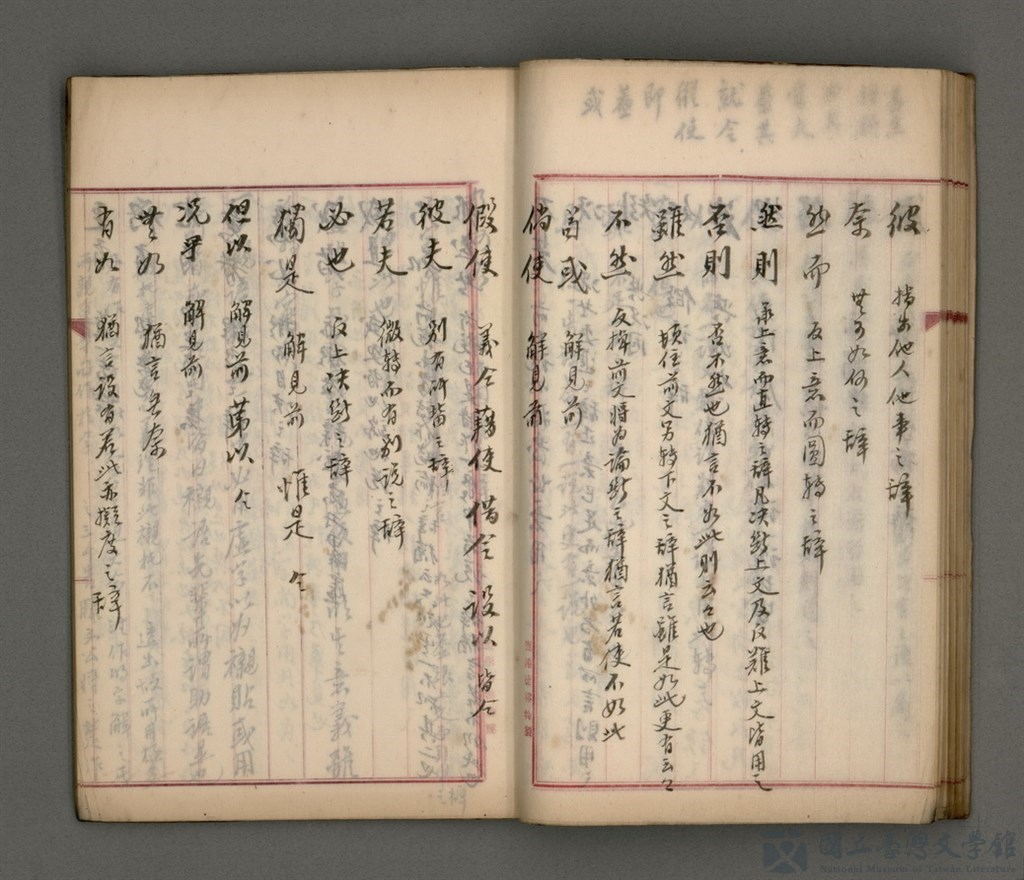 彼 指出他人他事之辞
奈 無可如何之辞
然而 反上意而圓轉之辞
然則 承上意而直轉之辞凡决斷上文及反難上文皆用之
否則 否不然也猶言不如此則云々也
雖然 頓住前文另轉下文之辞猶言雖是如此更有云々
不然 反掉前文将為論斷之辞猶言若使不如此
苟或 解見前
倘使 解見前
假使 義仝藉使 借令 設以 皆仝
彼夫 别有所指之辞
若夫 微轉而有别説之辞
必也 反上决斷之辞
獨是 解見前 惟是 仝
但以 解見前 苐以 仝
况乎 解見前
無如 猶言無奈
有如 猶言設有若此亦擬度之辞
就令
假使
即
蓋
或
國立臺灣文學館
National Museum of Taiwan Literature